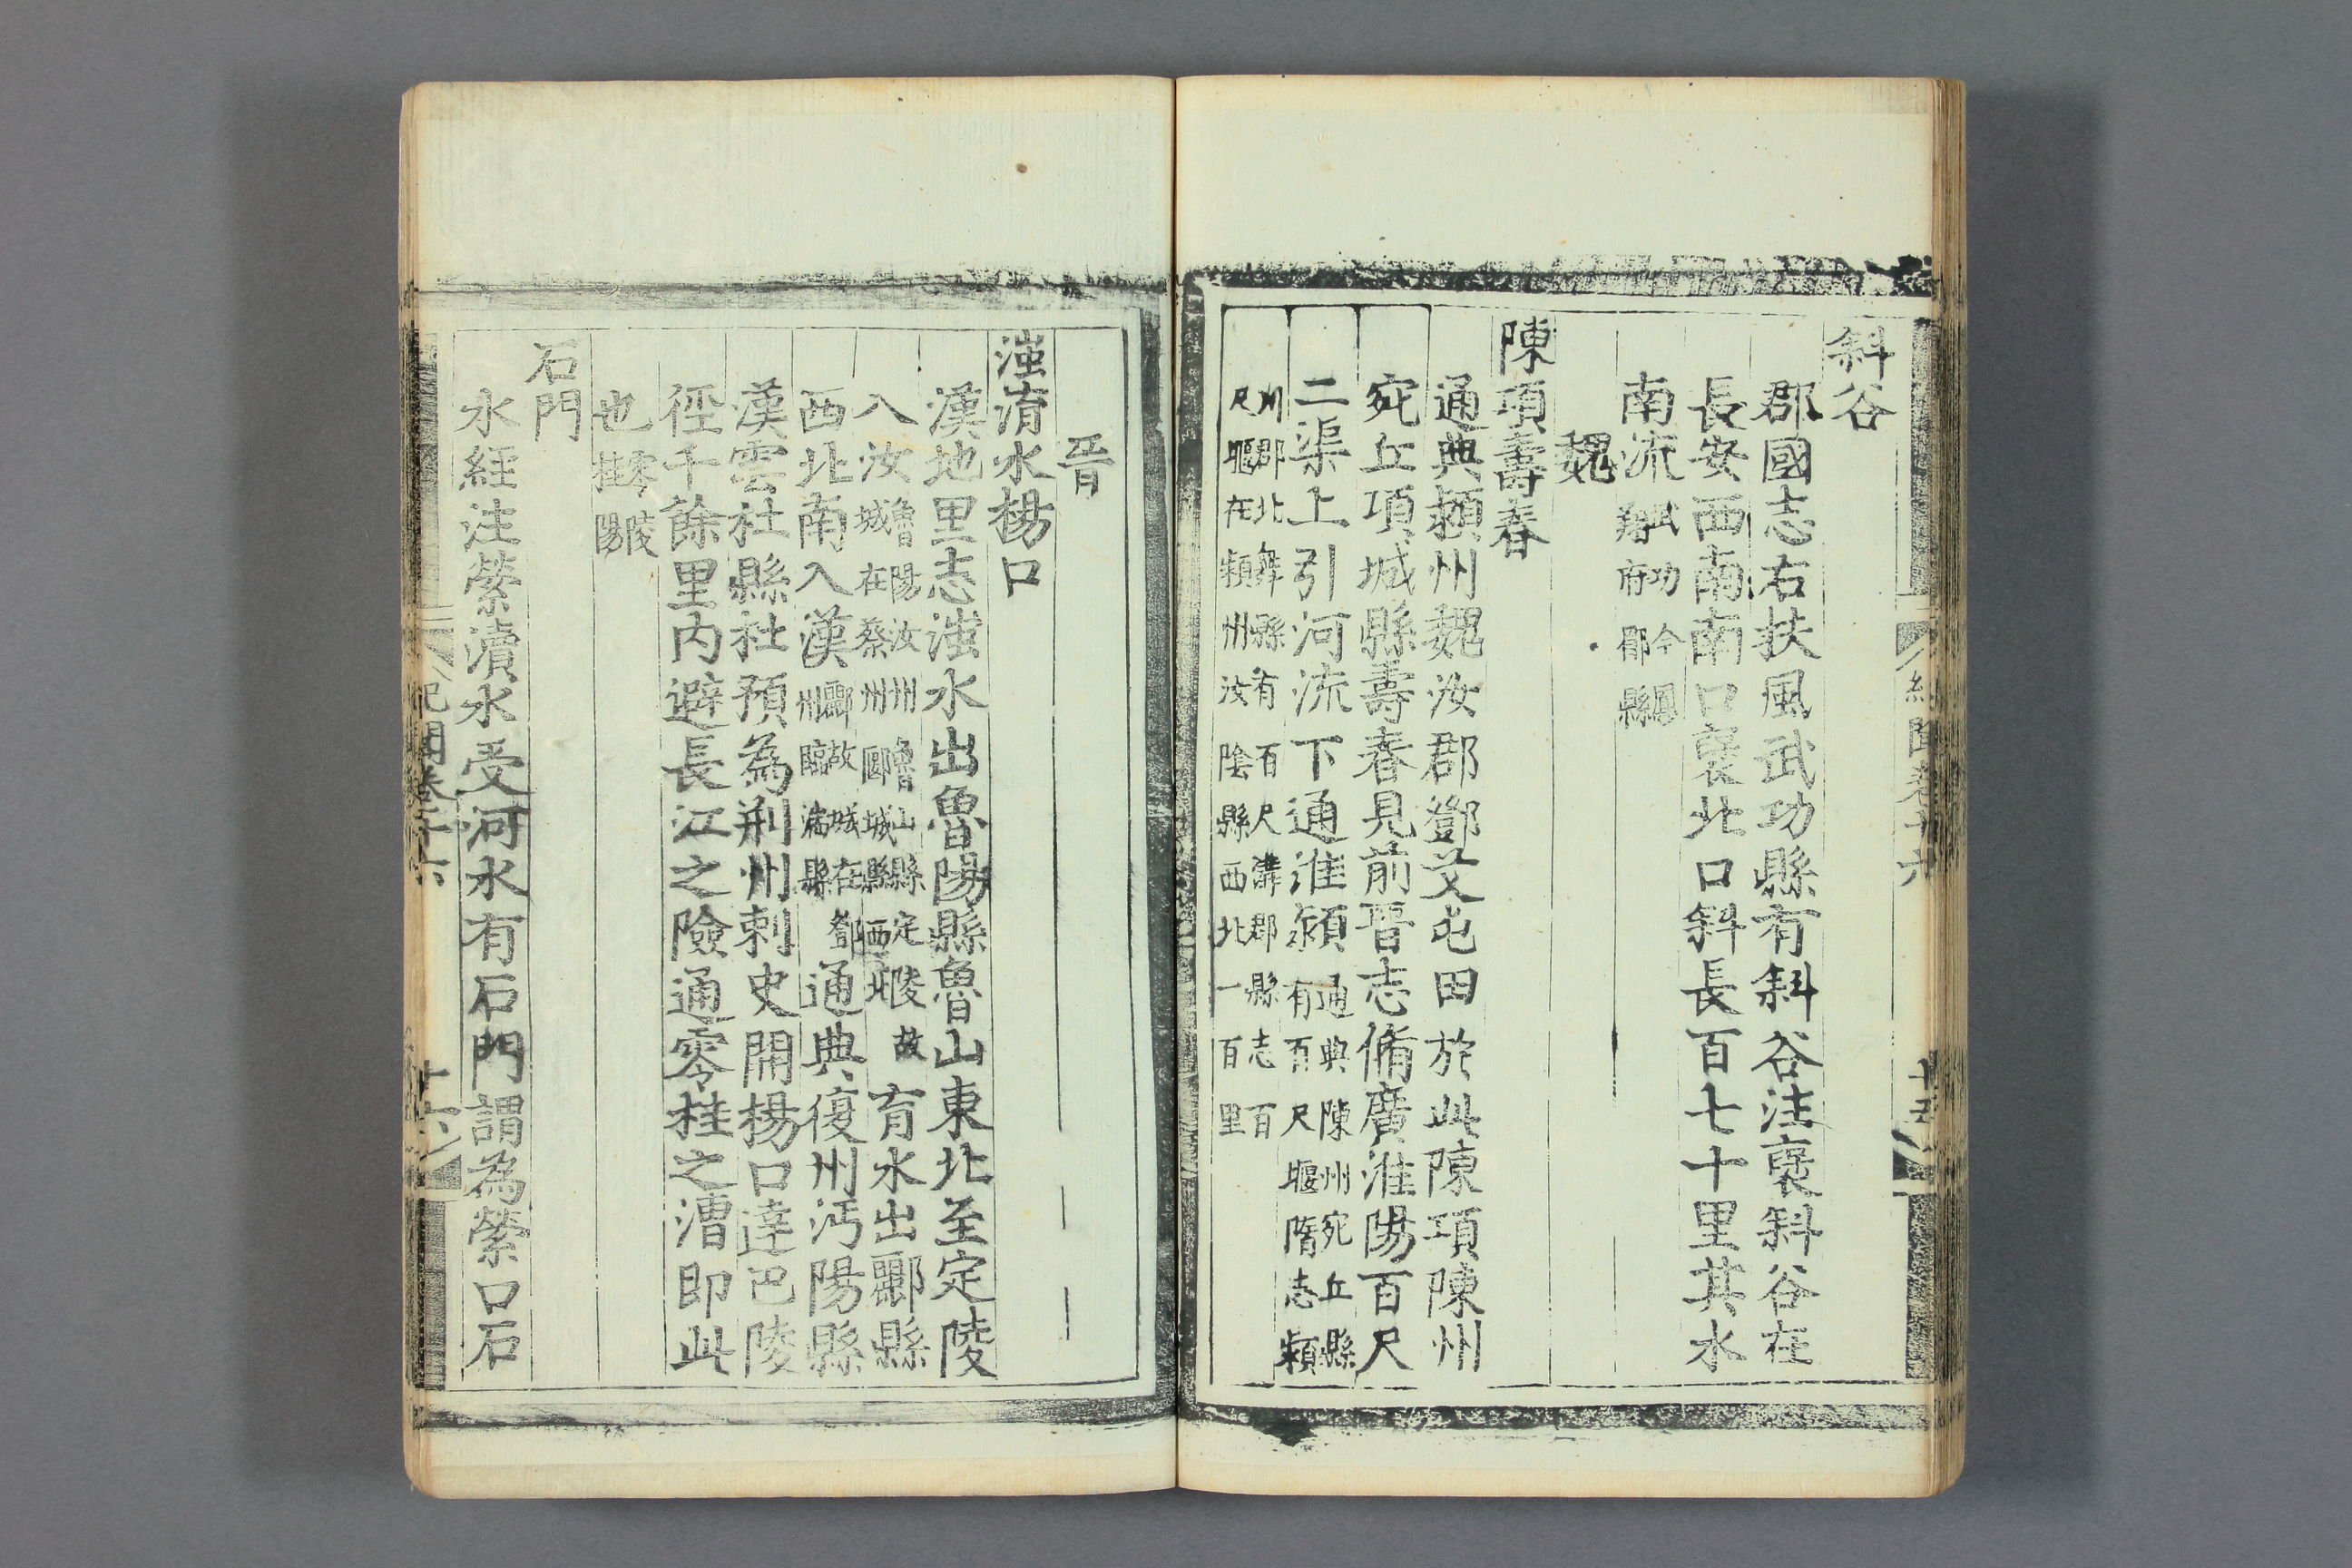 斜谷
郡國志右扶風武功縣有斜谷注襃斜谷在
長安西南南口襃北口斜長百七十里其水
南流武功今鳳翔府郿縣
魏
陳項壽春
通典潁州魏汝郡鄧艾屯田於此陳項陳州
宛丘項城縣壽春見前晋志脩廣淮陽百尺
二渠上引河流下通淮潁通典陳州宛丘縣有百尺堰隋志潁
川郡北舞縣有百尺溝郡縣志百尺堰在潁州汝陰縣西北一百里
紀聞卷十六
十五
晉
滍淯水楊口
漢地里志滍水出魯陽縣魯山東北至定陵
入汝魯陽汝州魯山縣定陵故城在蔡州郾城縣西北育水出酈縣
西北南入漢酈故城在鄧州臨湍縣通典復州沔陽縣
漢雲社縣社預為荊州刺史開楊口達巴陵
徑千餘里內避長江之險通零桂之漕即此
也零陵桂陽
石門
水經注滎瀆水受河水有石門謂為滎口石
紀聞卷十六
十六